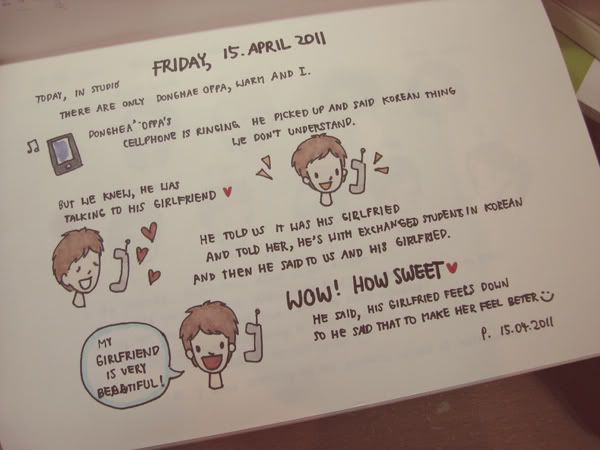 FRIDAY, 15. APRIL 2011
TODAY, IN STUDIO
THERE ARE ONLY DONGHAE OPPA, WARM AND I.
DONGHEA OPPA'S
CELLPHONE IS RINGING HE PICKED UP AND SAID KOREAN THING
WE DON'T UNDERSTAND.
BUT WE KNEW, HE WAS
TALKING TO HIS GIRLFRIEND ♥
HE TOLD US IT WAS HIS GIRLFRIED
AND TOLD HER, HE'S WITH EXCHANGED STUDENTS IN KOREAN
AND THEN HE SAID TO US AND HIS GIRLFRIED.
MY
GIRLFRIEND
IS VERY
BEAUTIFUL!
WOW! HOW SWEET ♥
HE SAID, HIS GIRLFRIED FEELS DOWN
SO HE SAID THAT TO MAKE HER FEEL BETER
P. 15.04.2011